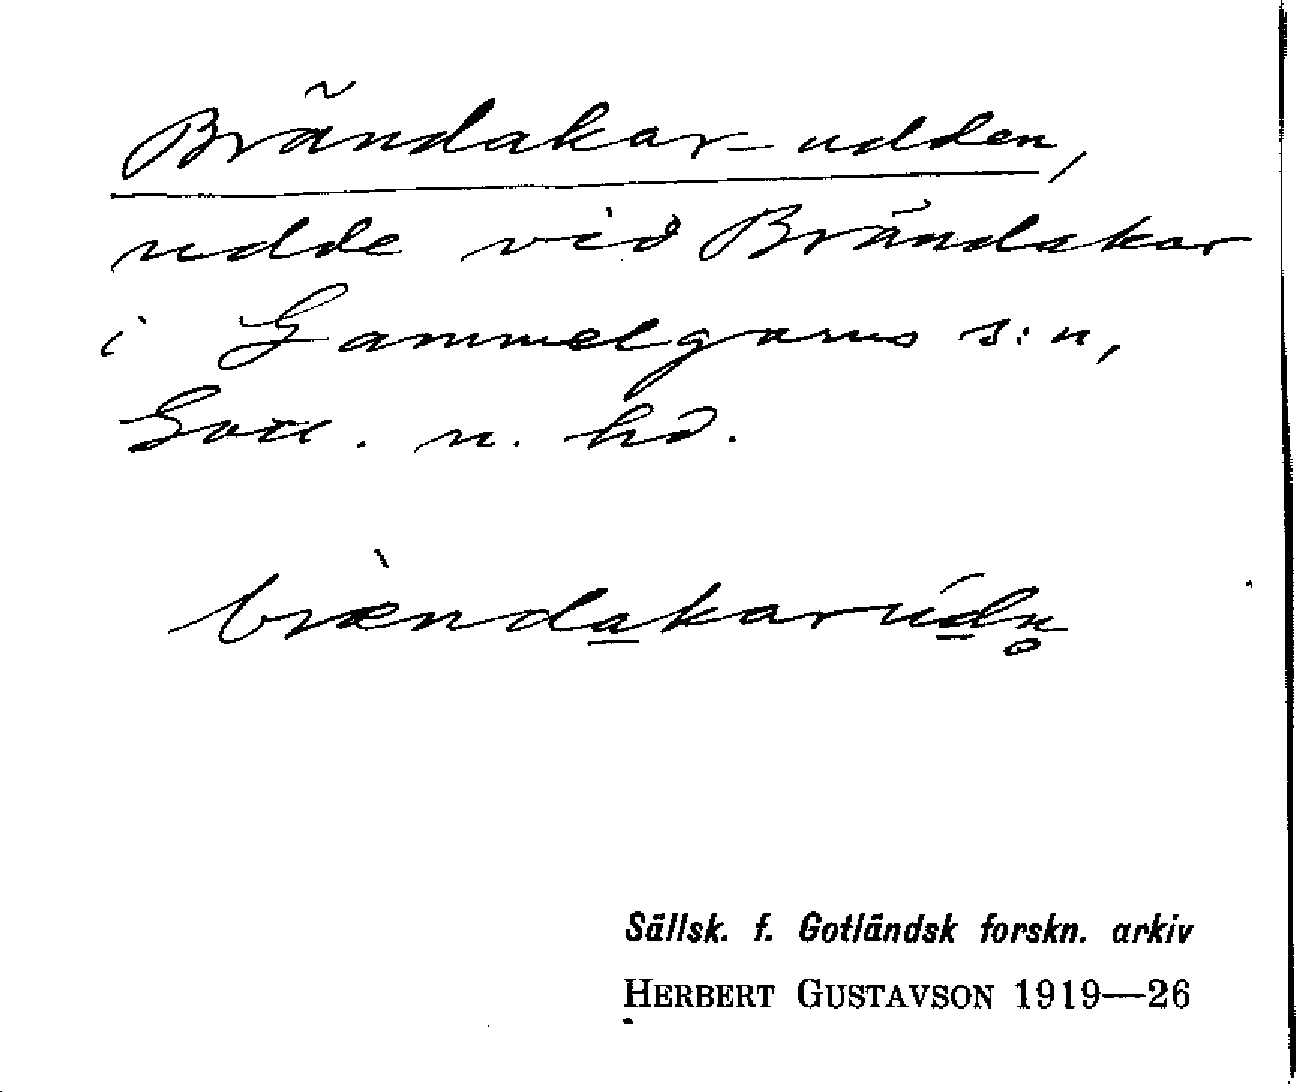 Brändakar-udden,
udde vid Brändakar
i Gammelgarns s:n,
Gotl. n. hd.
brændakarúdn̥
Sällsk. f. Gotländsk forskn. arkiv
HERBERT GUSTAVSON 1919—26